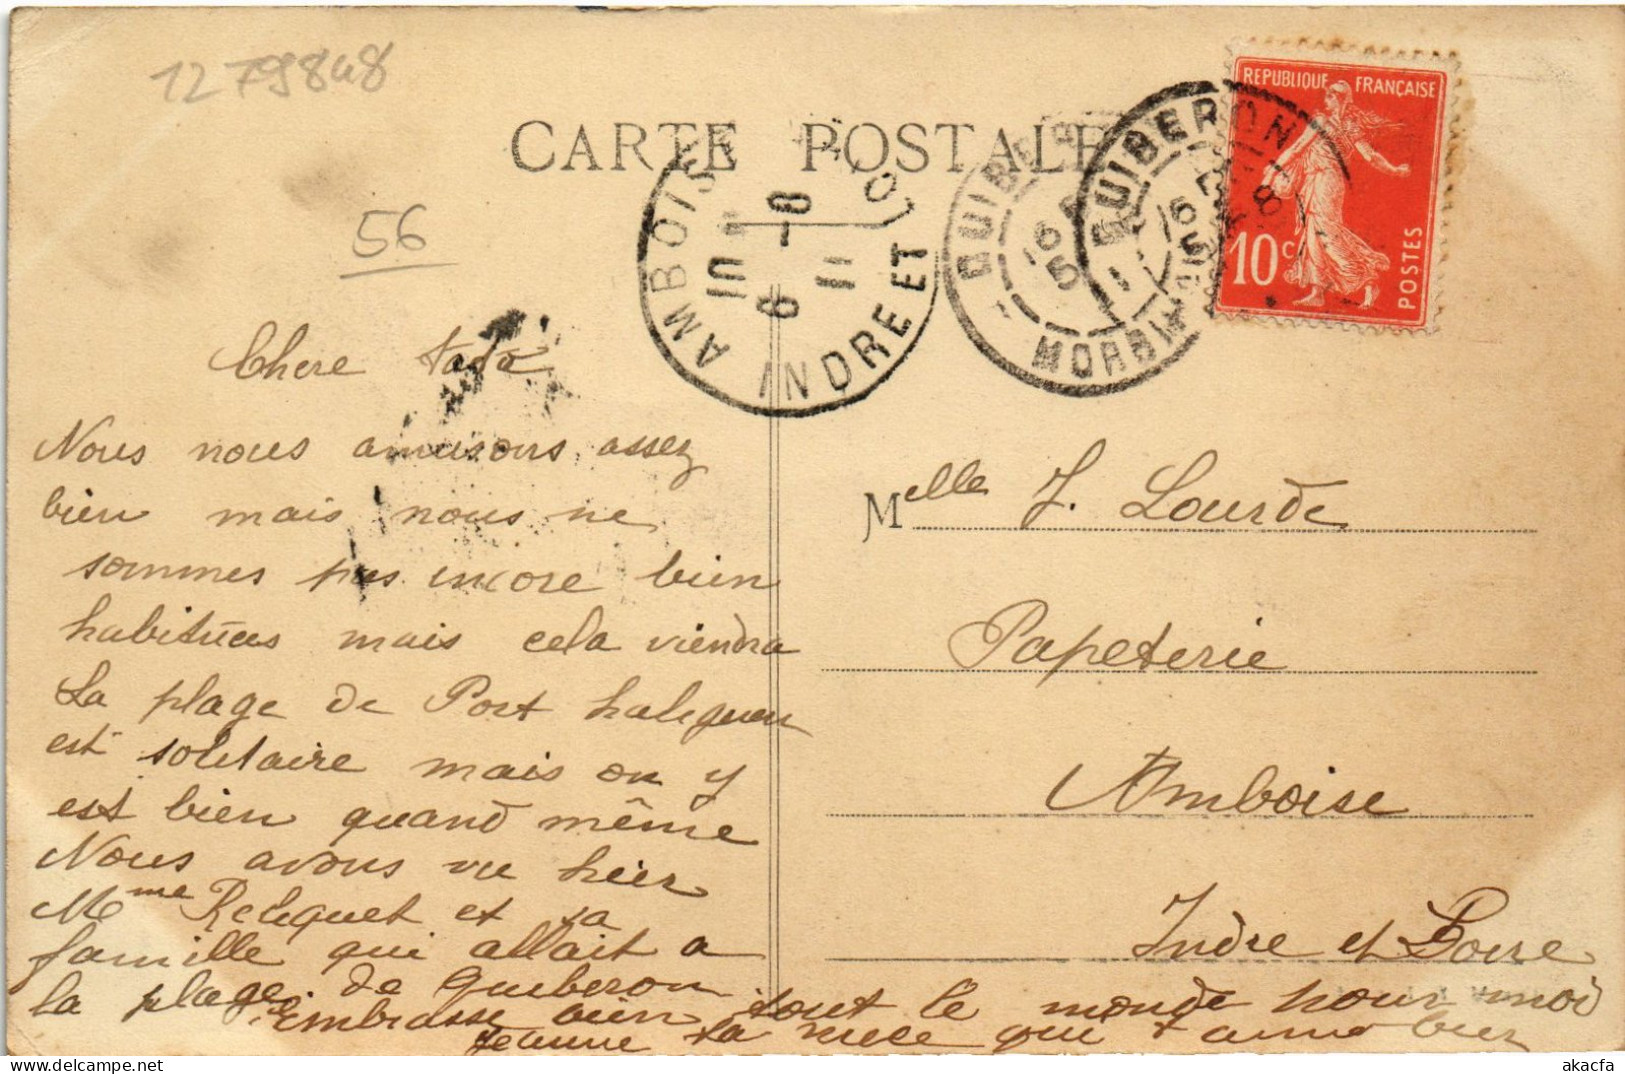 1279848
CARTE POSTALE
56
AMBOISE
10
8-8
11
INDRE ET
QUIBERON
MORBIHAN
QUIBERON
MORBIHAN
REPUBLIQUE FRANÇAISE
10c
POSTES
Chere tata
Nous nous amusons assez
bien mais nous ne
sommes pas encore bien
habituées mais cela viendra
La plage de Port haliguen
est solitaire mais on y
est bien quand même
Nous avons vu hier
Mme Reliquet et sa
famille qui allait a
la plage de Quiberon
Embrasse bien tout le monde pour moi
Jeanne ta niece qui t'aime bien
Melle J. Lourde
Papeterie
Amboise
Indre et Loire
akacfa